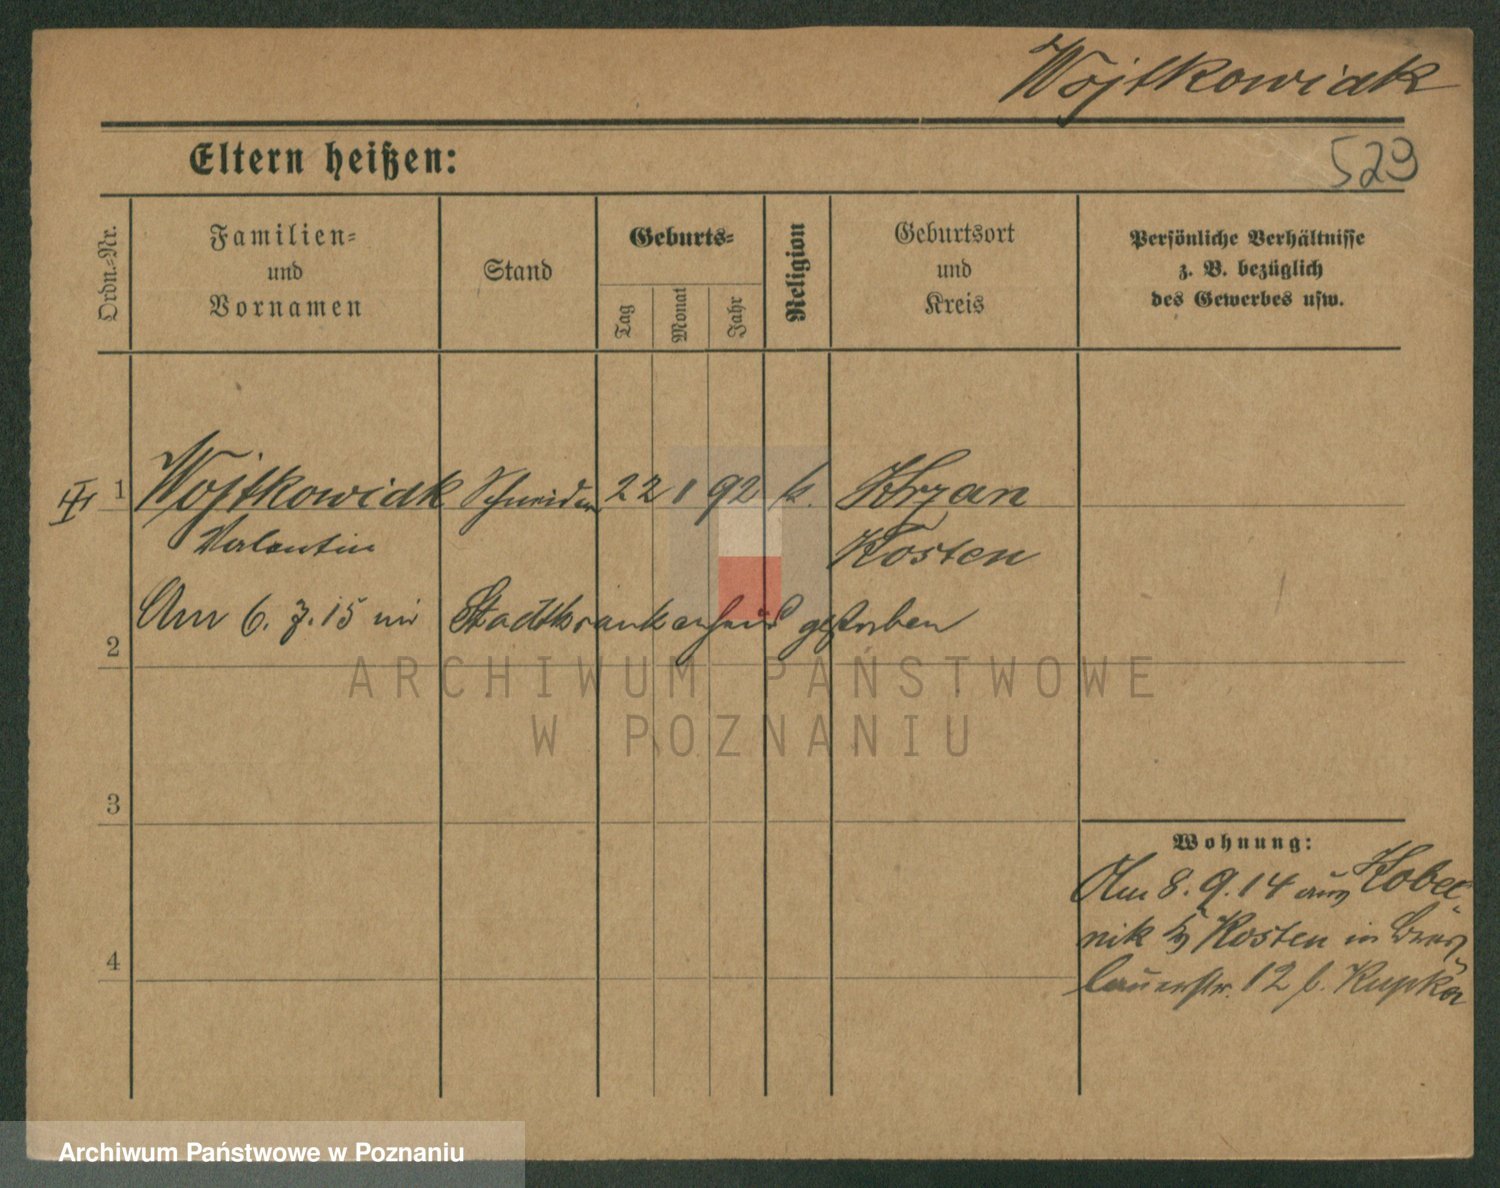 Wojtkowiak
Eltern heißen:
529
Ordn.-Nr.
Familien-
und
Vornamen
Stand
Geburts-
Tag
Monat
Jahr
Religion
Geburtsort
und
Kreis
Persönliche Verhältnisse
z. B. bezüglich
des Gewerbes usw.
1 Wojtkowiak Schneider 22 1 92 k. Krzan
Valentin Kosten
Am 6. 7. 15 im Stadtkrankenhaus gestorben
2
3
4
Wohnung:
Am 8. 9. 14 aus Kobel-
nik Kr Kosten in Bres
lauerstr. 12 b. Kupka
ARCHIWUM PAŃSTWOWE
W POZNANIU
Archiwum Państwowe w Poznaniu